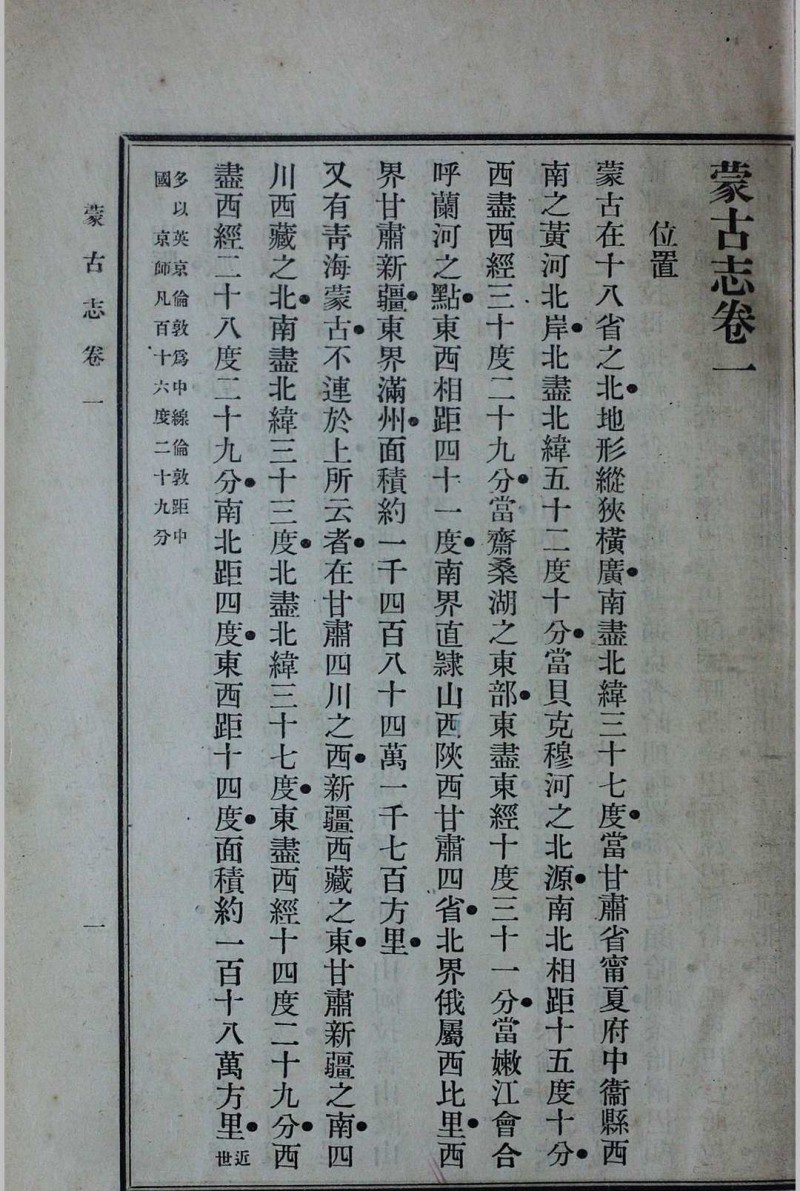 蒙古志卷一
位置
蒙古在十八省之北●地形縱狹橫廣●南盡北緯三十七度●當甘肅省甯夏府中衞縣西
南之黃河北岸●北盡北緯五十二度十分●當貝克穆河之北源●南北相距十五度十分●
西盡西經三十度二十九分●當齋桑湖之東部●東盡東經十度三十一分●當嫩江會合
呼蘭河之點●東西相距四十一度●南界直隸山西陝西甘肅四省●北界俄屬西比里●西
界甘肅新疆●東界滿州●面積約一千四百八十四萬一千七百方里●
又有靑海蒙古●不連於上所云者●在甘肅四川之西●新疆西藏之東●甘肅新疆之南●四
川西藏之北●南盡北緯三十三度●北盡北緯三十七度●東盡西經十四度二十九分●西
盡西經二十八度二十九分●南北距四度●東西距十四度●面積約一百十八萬方里●近世
多以英京倫敦爲中線倫敦距中
國京師凡百十六度二十九分
蒙古志卷一
一